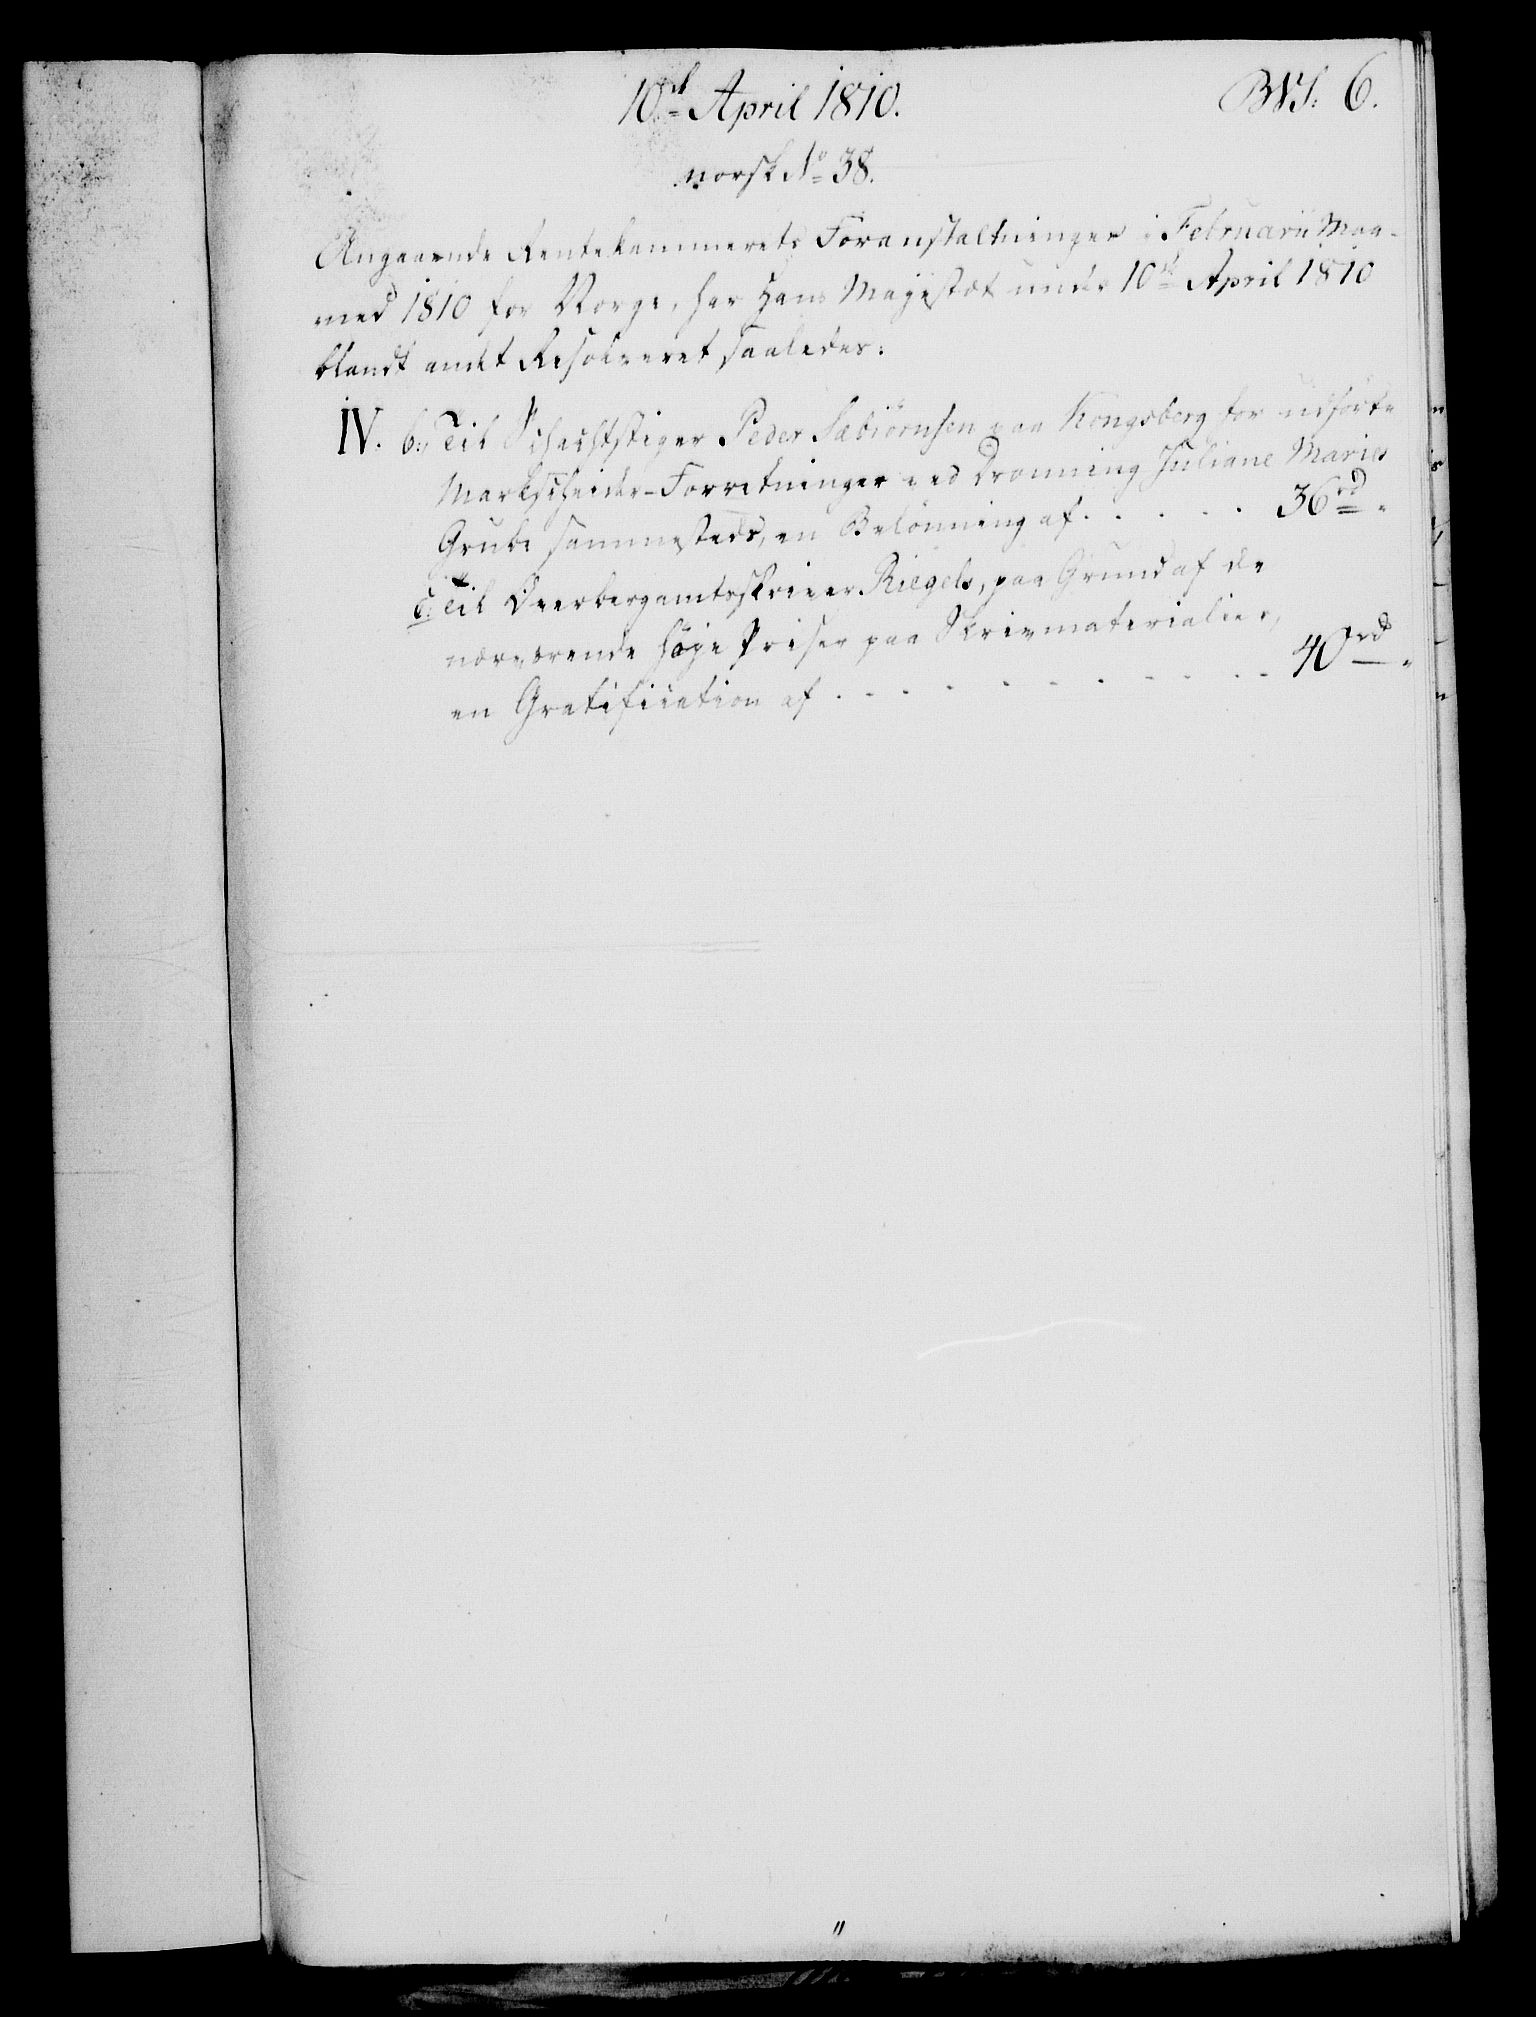 10de April 1810.
BWS: 6.
norsk No 38.
Angaaende Rentekammerets Foranstaltninger i Februarii Maa-
ned 1810 for Norge, har Hans Majestæt under 10de April 1810
blandt andet Resolveret saaledes:
IV. b., Til Schachtstiger Peder Sæbiörnsen paa Kongsberg for udförte
Markscheider-Forretninger ved Dronning Juliane Maries
Grube sammesteds, en Belönning af . . . . . 36 rd „
c. Til Overbergamtsskriver Riegels, paa Grund af de
nærværende höje Priser paa Skrivmaterialier,
en Gratification af . . . . . . . . . . 40 rd „
"